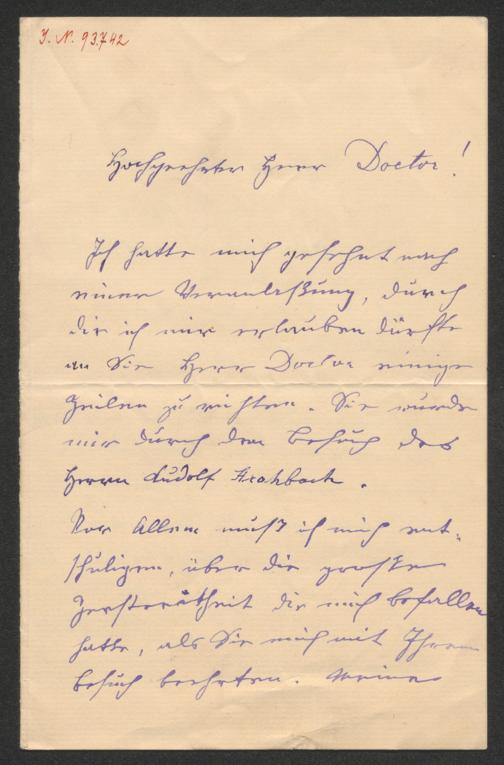 J. N. 93.742
Hochgeehrter Herr Doctor!
Ich hatte mich gesehnt nach
einer Veranlaßung, durch
die ich mir erlauben dürfte
an Sie Herr Doctor einige
Zeilen zu richten. Sie wurde
mir durch den Besuch des
Herrn Rudolf
Vor Allem muß ich mich ent-
schuligen, über die große
Zerstreutheit die mich befallen
hatte, als Sie mich mit Ihrem
Besuch beehrten. Meine